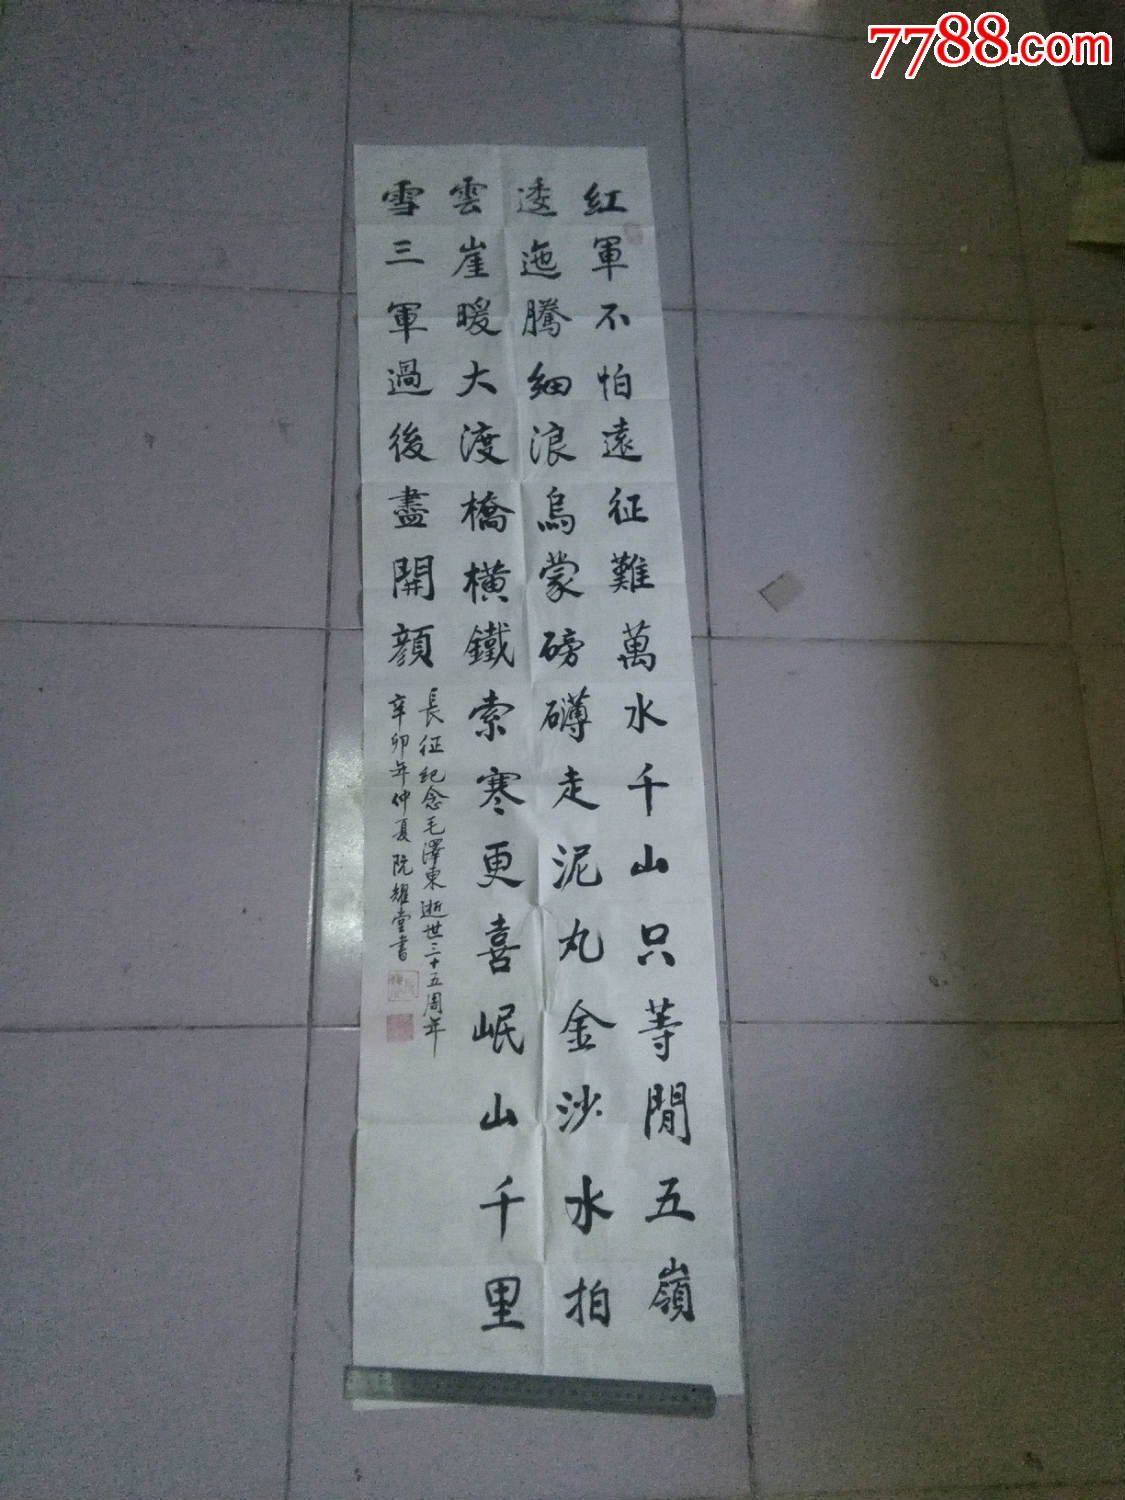 7788.com
紅軍不怕遠征難萬水千山只等閒五嶺
逶迤騰細浪烏蒙磅礴走泥丸金沙水拍
雲崖暖大渡橋橫鐵索寒更喜岷山千里
雪三軍過後盡開顏
長征紀念毛澤東逝世三十五周年
辛卯年仲夏阮耀堂書